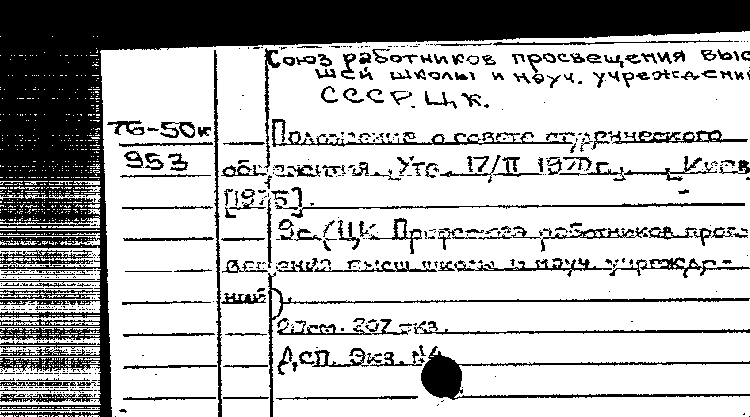 Союз работников просвещения выс
шей школы и науч. учреждени
СССР. Ц.К.
76-50к Положение о совете студенческого
953 общежития. Утв. 17/II 1970г., Киев
[1975].
9с. (ЦК Профсоюза работников прос
вещения высш школы и науч. учрежде-
ний).
207 экз.
ДСП. Экз. №